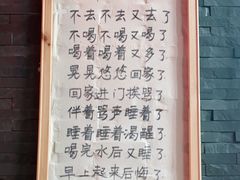 不去不去又去了
不喝不喝又喝了
喝着喝着又多了
晃晃悠悠回家了
回家进门挨骂了
伴着骂声睡着了
睡着睡着渴醒了
喝完水后又睡了
早上起来后悔了